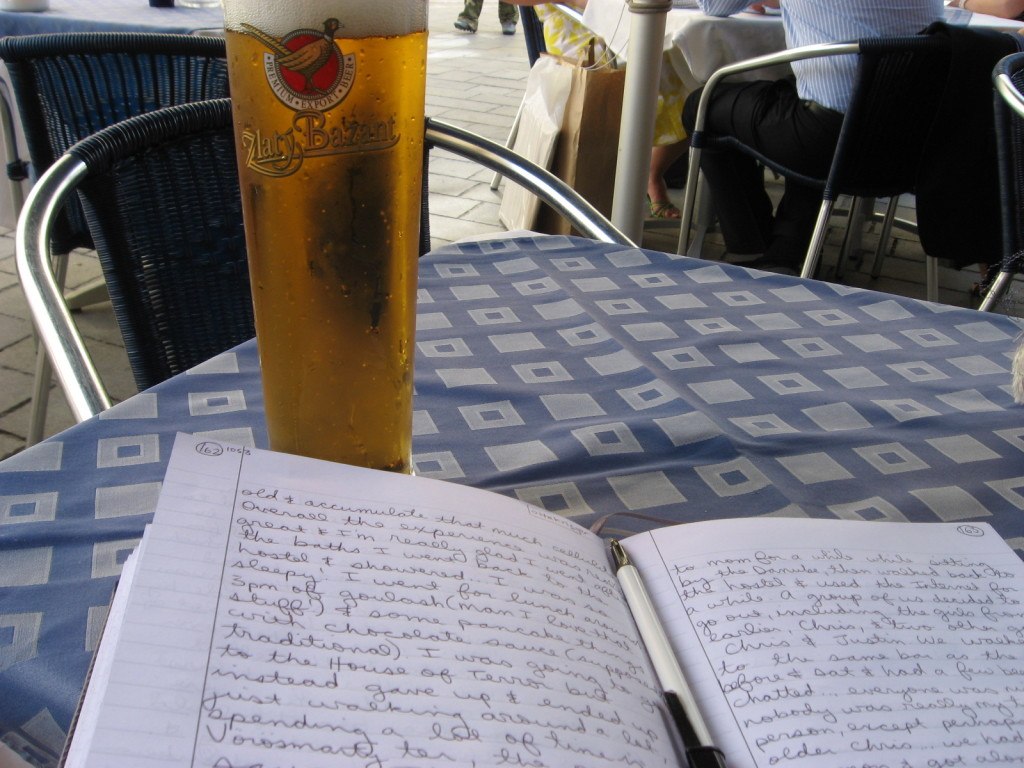 PREMIUM EXPORT BEER
Zlatý Bažant
162
old & accumulate that much cellu
Overall the experience was rea
great & I'm really glad I went. Aft
the baths I went back to the
hostel & showered. I was so
sleepy! I went for lunch around
3pm of goulash (man I love that
stuff!) & some pancake things
with chocolate sauce (supposedly
traditional). I was going to go
to the House of Terror but
instead gave up & ended up
just walking around a lot,
spending a lot of time
Vorosmarty ter, the
163
to mom for a while while sitting
by the Danube, then walked back to
the hostel & used the Internet for
a while. A group of us decided to
go out, including the gals from
earlier, Chris & two other guys
Chris & Justin. We walked
to the same bar as the
before & sat & had a few beers
chatted... everyone was nice
nobody was really my
person, except perhaps
older Chris... we had